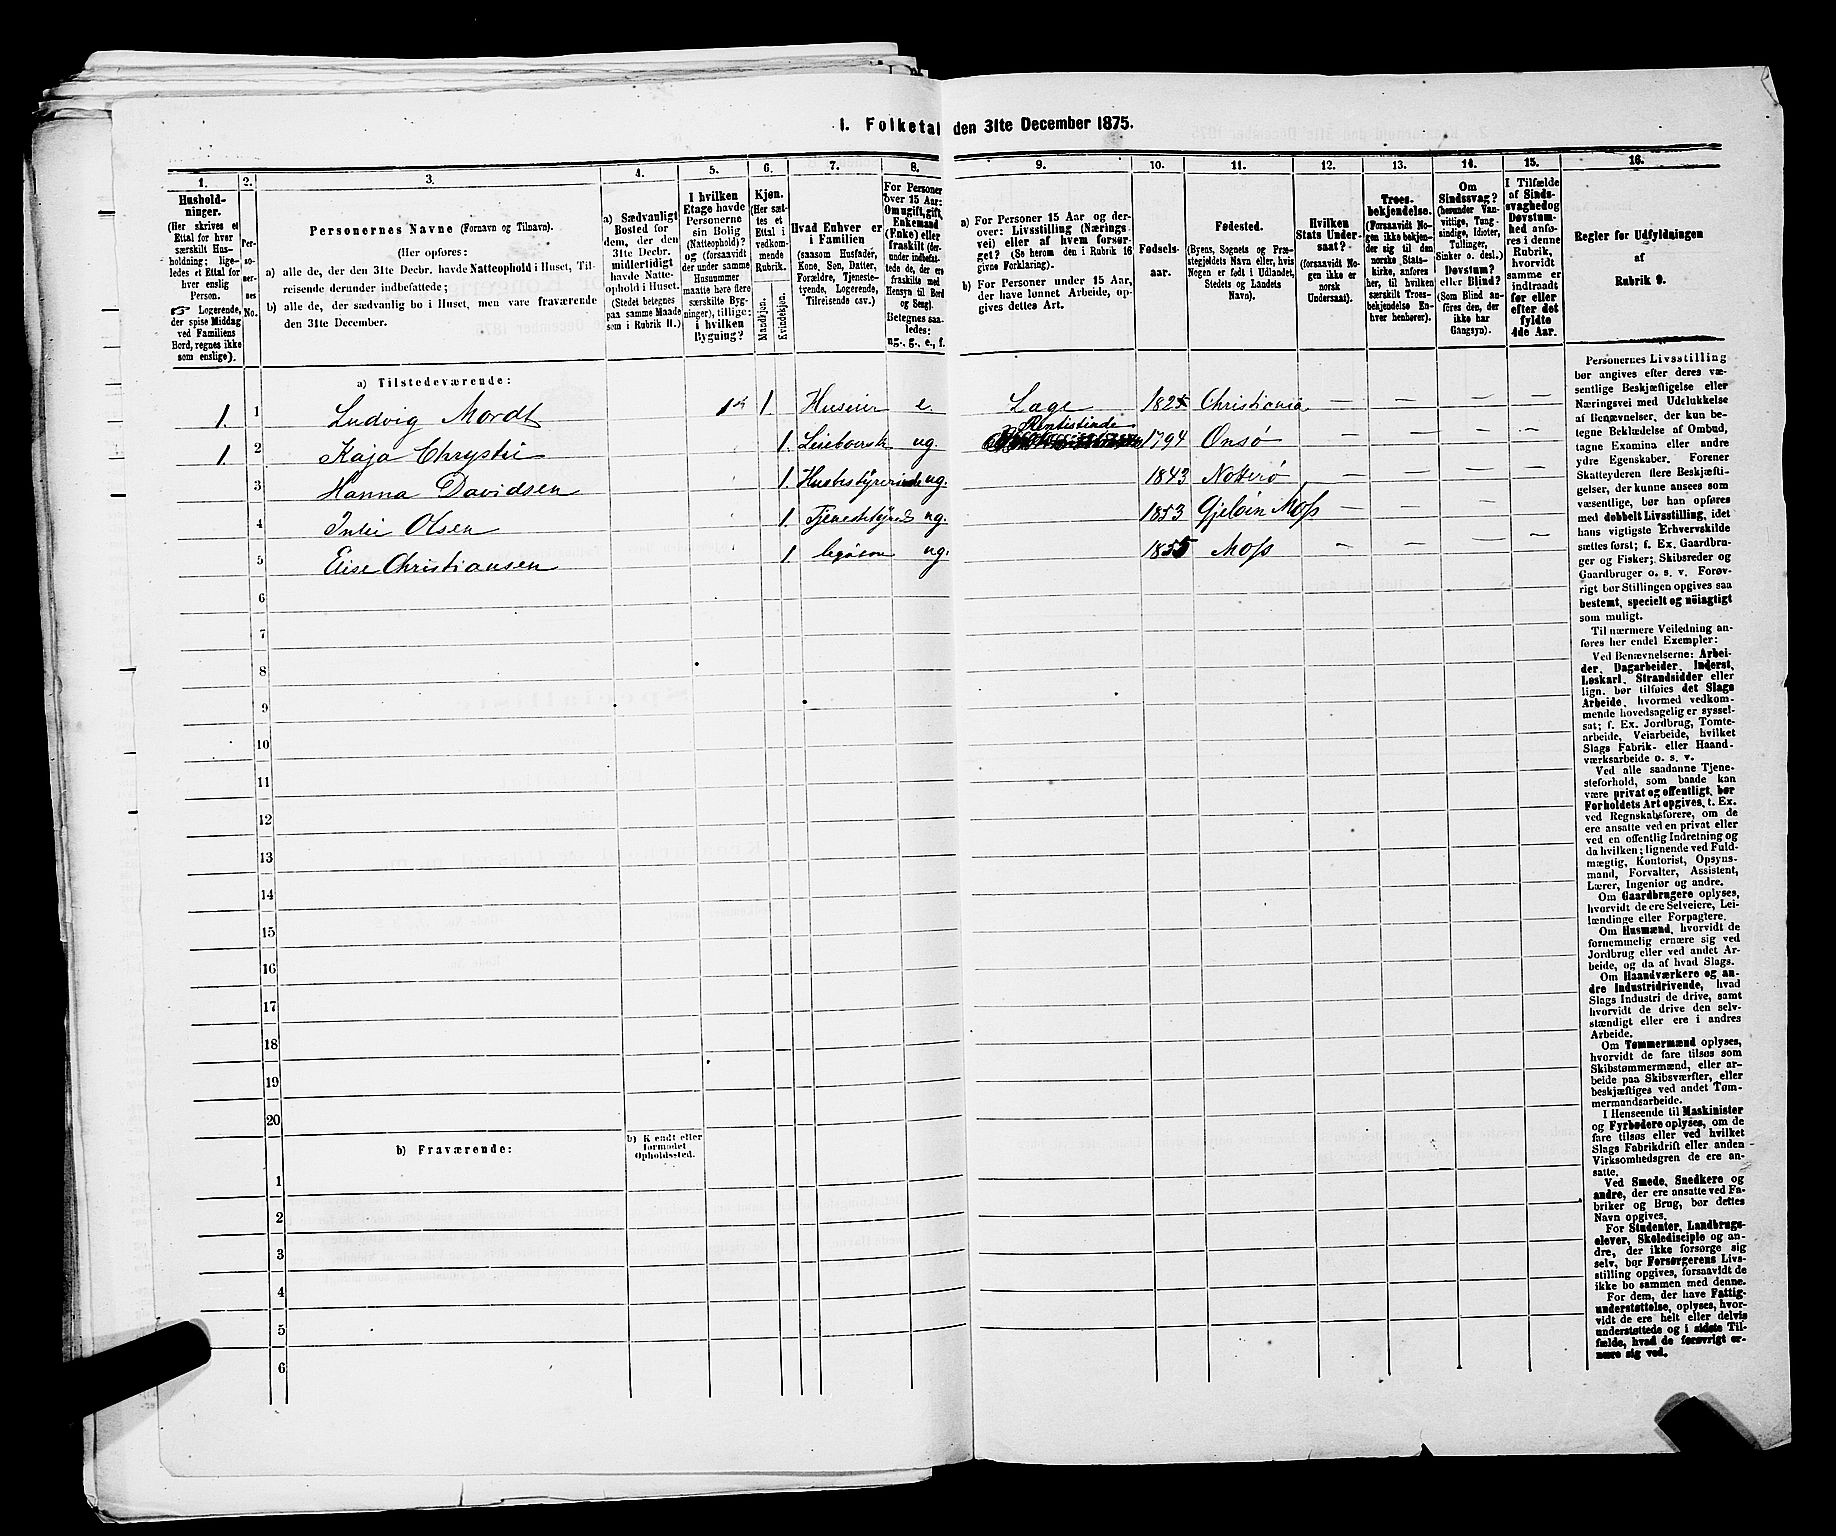 1. Folketal den 31te December 1875.
1.
2.
3.
4.
5.
6.
7.
8.
9.
10.
11.
12.
13.
14.
15.
16.
Hushold-
ninger.
(Her skrives et
Ettal for hver
særskilt Hus-
holdning; lige-
ledes et Ettal for
hver enslig
Person.
Logerende,
der spise Middag
ved Familiens
Bord, regnes ikke
som enslige).
Per-
so-
ner-
nes
No.
Personernes Navne (Fornavn og Tilnavn).
(Her opføres:
a) alle de, der den 31te Decbr. havde Natteophold i Huset, Til-
reisende derunder indbefattede;
b) alle de, der sædvanlig bo i Huset, men vare fraværende
den 31te December.
a) Sædvanligt
Bosted for
dem, der den
31te Decbr.
midlertidigt
havde Natte-
ophold i Huset.
(Stedet betegnes
paa samme Maade
som i Rubrik 11.)
I hvilken
Etage havde
Personerne
sin Bolig
(Natteophold)?
og (forsaavidt
der under samme
Husnummer
maatte høre flere
særskilte Byg-
ninger), tillige:
i hvilken
Bygning?
Kjøn.
(Her sæt-
tes et
Ettal i
vedkom-
mende
Rubrik.
Mandkjøn.
Kvindekjøn.
Hvad Enhver er
i Familien
(saasom Husfader,
Kone, Søn, Datter,
Forældre, Tjeneste-
tyende, Logerende,
Tilreisende cav.)
For Personer
over 15 Aar:
Om ugift, gift,
Enkemand
(Enke) eller
fraskilt (der-
under indbefat-
tede de, der ere
fraskilte med
Hensyn til Bord
og Seng).
Betegnes saa-
ledes:
ug., g., e., f.
a) For Personer 15 Aar og der-
over: Livsstilling (Nærings-
vei) eller af hvem forsør-
get? (Se herom den i Rubrik 16
givne Forklaring).
b) For Personer under 15 Aar,
der have lønnet Arbeide, op-
gives dettes Art.
Fødsels-
aar.
Fødested.
(Byens, Sognets og Præ-
stegjeldets Navn eller, hvis
Nogen er født i Udlandet,
Stedets og Landets
Navn).
Hvilken
Stats Under-
saat?
(forsaavidt No-
gen ikke er
norsk
Undersaat).
Troes-
bekjendelse.
(Forsaavidt No-
gen ikke bekjen-
der sig til den
norske Stats-
kirke, anføres
her, til hvilken
særskilt Troes-
bekjendelse En-
hver henhører).
Om
Sindssvag?
(herunder Van-
vittige, Tung-
sindige, Idioter,
Tullinger,
Sinker o. desl.)
Døvstum?
eller Blind?
(Som Blind an-
føres den, der
ikke har
Gangsyn).
I Tilfælde
af Sinds-
svaghed og
Døvstum-
hed anfø-
res i denne
Rubrik,
hvorvidt
samme er
indtraadt
før eller
efter det
fyldte
4de Aar.
Regler for Udfyldningen
af
Rubrik 9.
a) Tilstedeværende:
1. 1 Ludvig Mordt 1 1. Huseier e. Læge 182 Christiania — — — —
1. 2 Kaja Chrystie 1. ug. Rentistinde 1794 Onsø — — — —
3 Hanna Davidsen 1. ug. 1843 Notterø — — — —
4 Olsen 1. ug. 1853 Gjeløin Moss — —
5 Elise Christiansen 1. ug. 1855 Moss — — — —
6
7
8
9
10
11
12
13
14
15
16
17
18
19
20
b) Fraværende:
b) Kjendt eller
formodet
Opholdssted.
1
2
3
4
5
6
Personernes Livsstilling
bør angives efter deres væ-
sentlige Beskjæftigelse eller
Næringsvei med Udelukkelse
af Benævnelser, der kun be-
tegne Beklædelse af Ombud,
tagne Examina eller andre
ydre Egenskaber. Forener
Skatteyderen flere Beskjæfti-
gelser, der kunne ansees som
væsentlige, bør han opføres
med dobbelt Livsstilling, idet
hans vigtigste Erhvervskilde
sættes først; f. Ex. Gaardbru-
ger og Fisker; Skibsreder og
Gaardbruger o. s. v. Forøv-
rigt bør Stillingen opgives saa
bestemt, specielt og nöiagtigt
som muligt.
Til nærmere Veiledning an-
føres her endel Exempler:
Ved Benævnelserne: Arbei-
der, Dagarbeider, Inderst,
Løskarl, Strandsidder eller
lign. bør tilføies det Slags
Arbeide, hvormed vedkom-
mende hovedsagelig er syssel-
sat; f. Ex. Jordbrug, Tomte-
arbeide, Veiarbeide, hvilket
Slags Fabrik- eller Haand-
værksarbeide o. s. v.
Ved alle saadanne Tjene-
steforhold, som baade kan
være privat og offentligt, bør
Forholdets Art opgives, t. Ex.
ved Regnskabsførere, om de
ere ansatte ved en privat eller
ved en offentlig Indretning og
da hvilken; lignende ved Fuld-
mægtig, Kontorist, Opsyns-
mand, Forvalter, Assistent,
Lærer, Ingeniør og andre.
Om Gaardbrugere oplyses,
hvorvidt de ere Selveiere, Lei-
lændinge eller Forpagtere.
Om Husmænd, hvorvidt de
fornemmelig ernære sig ved
Jordbrug eller ved andet Ar-
beide, og da af hvad Slags.
Om Haandværkere og an-
dre Industridrivende, hvad
Slags Industri de drive, samt
hvorvidt de drive den selv-
stændigt eller ere i andres
Arbeide.
Om Tømmermænd oplyses,
hvorvidt de fare tilsøs som
Skibstømmermænd, eller ar-
beide paa Skibsværfter, eller
beskjæftiges ved andet Tøm-
mermandsarbeide.
I Henseende til Maskinister
og Fyrbødere oplyses, om de
fare tilsøs eller ved hvilket
Slags Fabrikdrift eller anden
Virksomhedsgren de ere an-
satte.
Ved Smede, Snedkere og
andre, der ere ansatte ved Fa-
briker og Brug, bør dettes
Navn opgives.
For Studenter, Landbrugs-
elever, Skoledisciple og an-
dre, der ikke forsørge sig
selv, bør Forsørgerens Livs-
stilling opgives, forsaavidt de
ikke bo sammen med denne.
For dem, der have Fattig-
understøttelse, oplyses, hvor-
vidt de ere helt eller delvis
understøttede og i sidste Til-
fælde, hvad de forøvrigt er-
nære sig ved.